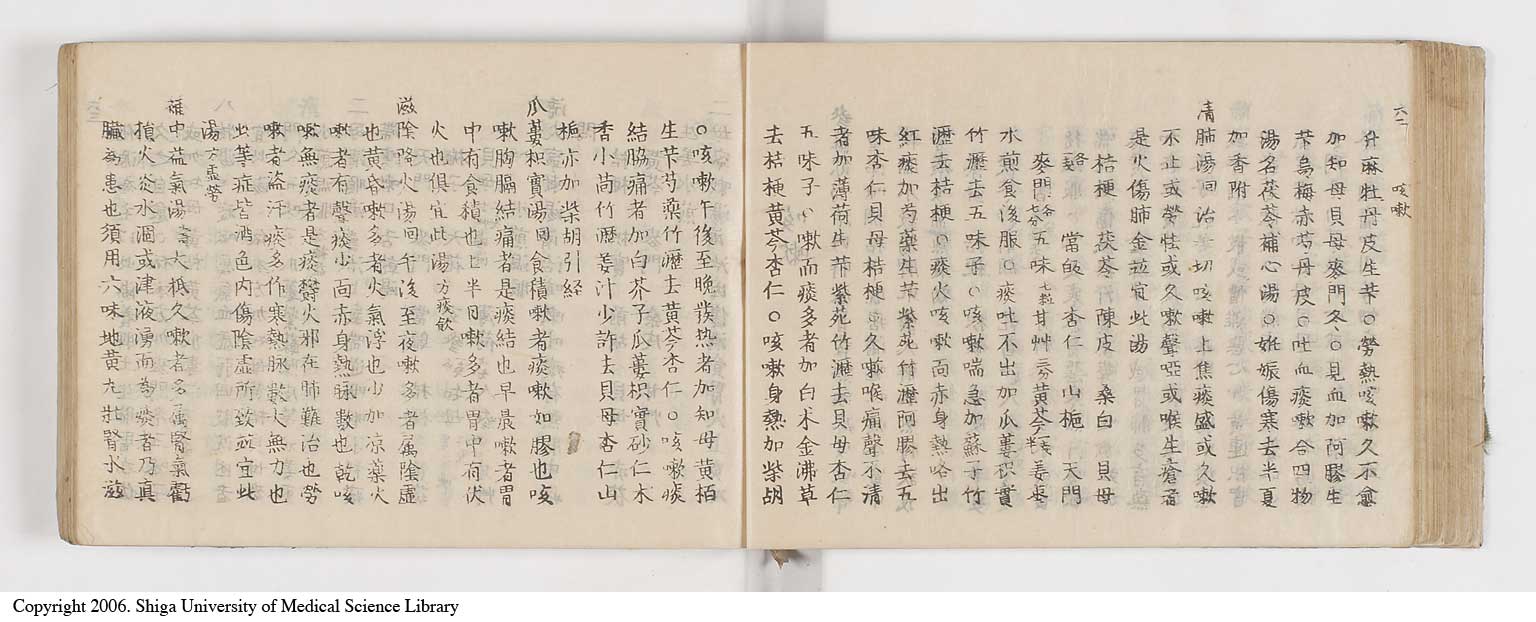 六二 咳嗽
升麻牡丹皮生芐〇勞熱咳嗽久不愈
加知母貝母麥門冬〇見血加阿膠生
芐烏梅赤芍丹皮〇吐血痰嗽合四物
湯名茯苓補心湯〇姙娠傷寒去半夏
加香附
清肺湯 治一切咳嗽上焦痰盛或久嗽
不止或勞怯或久嗽聲啞或喉生瘡者
是火傷肺金並宜此湯
桔梗 茯苓 陳皮 桑白 貝母
當皈 杏仁 山梔 天門
麥門 五味七粒甘艸三分黃芩姜棗
水煎食後服〇痰吐不出加瓜蔞枳實
竹瀝去五味子〇咳嗽喘急加蘇子竹
瀝去桔梗〇痰火咳嗽面赤身熱咯出
紅痰加芍藥生芐紫苑竹瀝阿膠去五
味杏仁貝母桔梗〇久嗽喉痛聲不清
者加薄荷生芐紫苑竹瀝去貝母杏仁
五味子〇嗽而痰多者加白朮金沸草
去桔梗黃芩杏仁〇咳嗽身熱加柴胡
〇咳嗽午後至晚發热者加知母黃栢
生芐芍藥竹瀝去黃芩杏仁〇咳嗽痰
結脇痛者加白芥子瓜蔞枳實砂仁木
香小茴竹瀝姜汁少許去貝母杏仁山
梔亦加柴胡引経
瓜蔞枳實湯 食積嗽者痰嗽如膠也咳
嗽胸膈結痛者是痰結也早晨嗽者胃
中有食積也上半日嗽多者胃中有伏
火也俱宜此湯方痰飲
滋陰降火湯 午後至夜嗽多者属陰虛
也黃昏嗽多者火氣浮也少加凉藥火
嗽者有聲痰少面赤身熱脉數也乾咳
嗽無痰者是痰欝火邪在肺難治也勞
嗽者盜汗痰多作寒熱脉數大無力也
以上等症皆酒色内傷陰虛所致並宜此
湯方虛勞
補中益氣湯 大抵久嗽者多属腎氣虧
損火炎水涸或津液湧而為痰者乃真
臟為患也須用六味地黃丸壯腎水滋